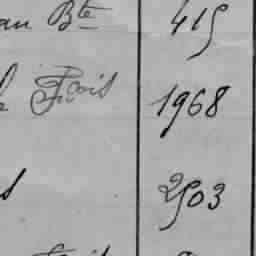 au Bte 415
Fcois 1968
2903